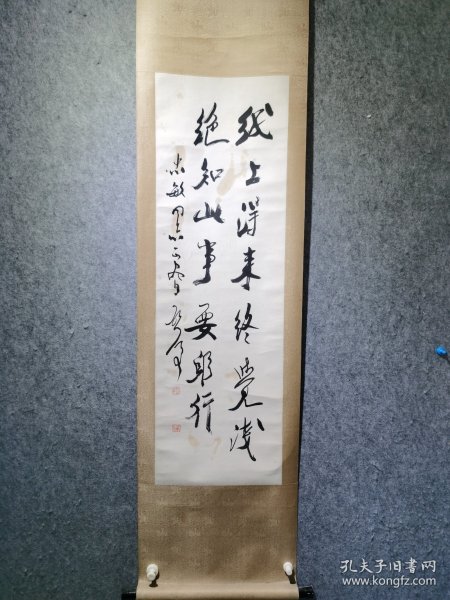 纸上得来终觉浅
绝知此事要躬行
忠敏同志正腕
孔夫子旧书网
www.kongfz.com